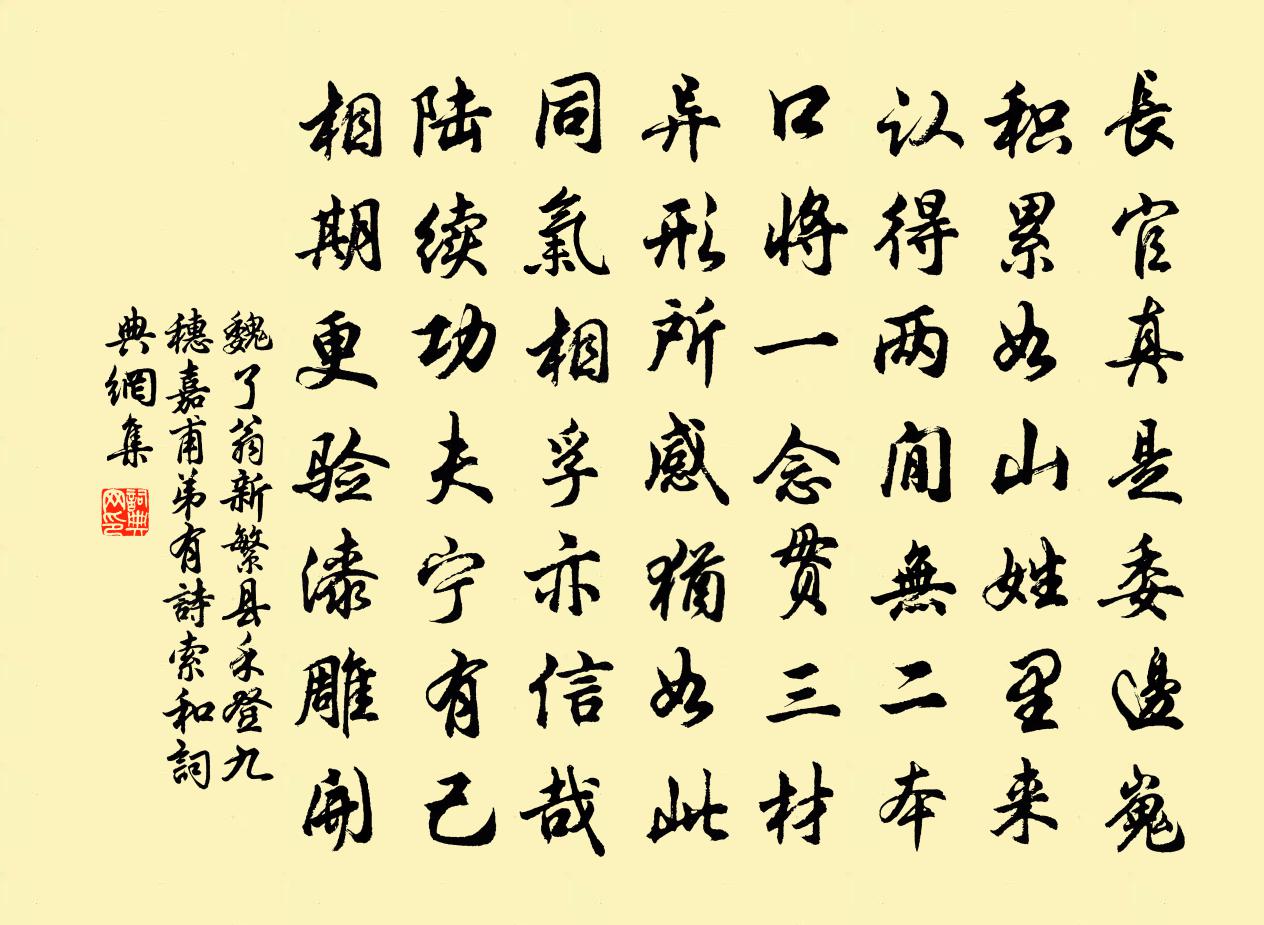 長官真是委邊嵬
积累如山姓里来
认得两间無二本
口将一念贯三材
异形所感猶如此
同氣相孚亦信哉
陆续功夫宁有已
相期更验漆雕開
魏了翁新繁县禾登九
穗嘉甫弟有詩索和詞
典網集
詞典网印